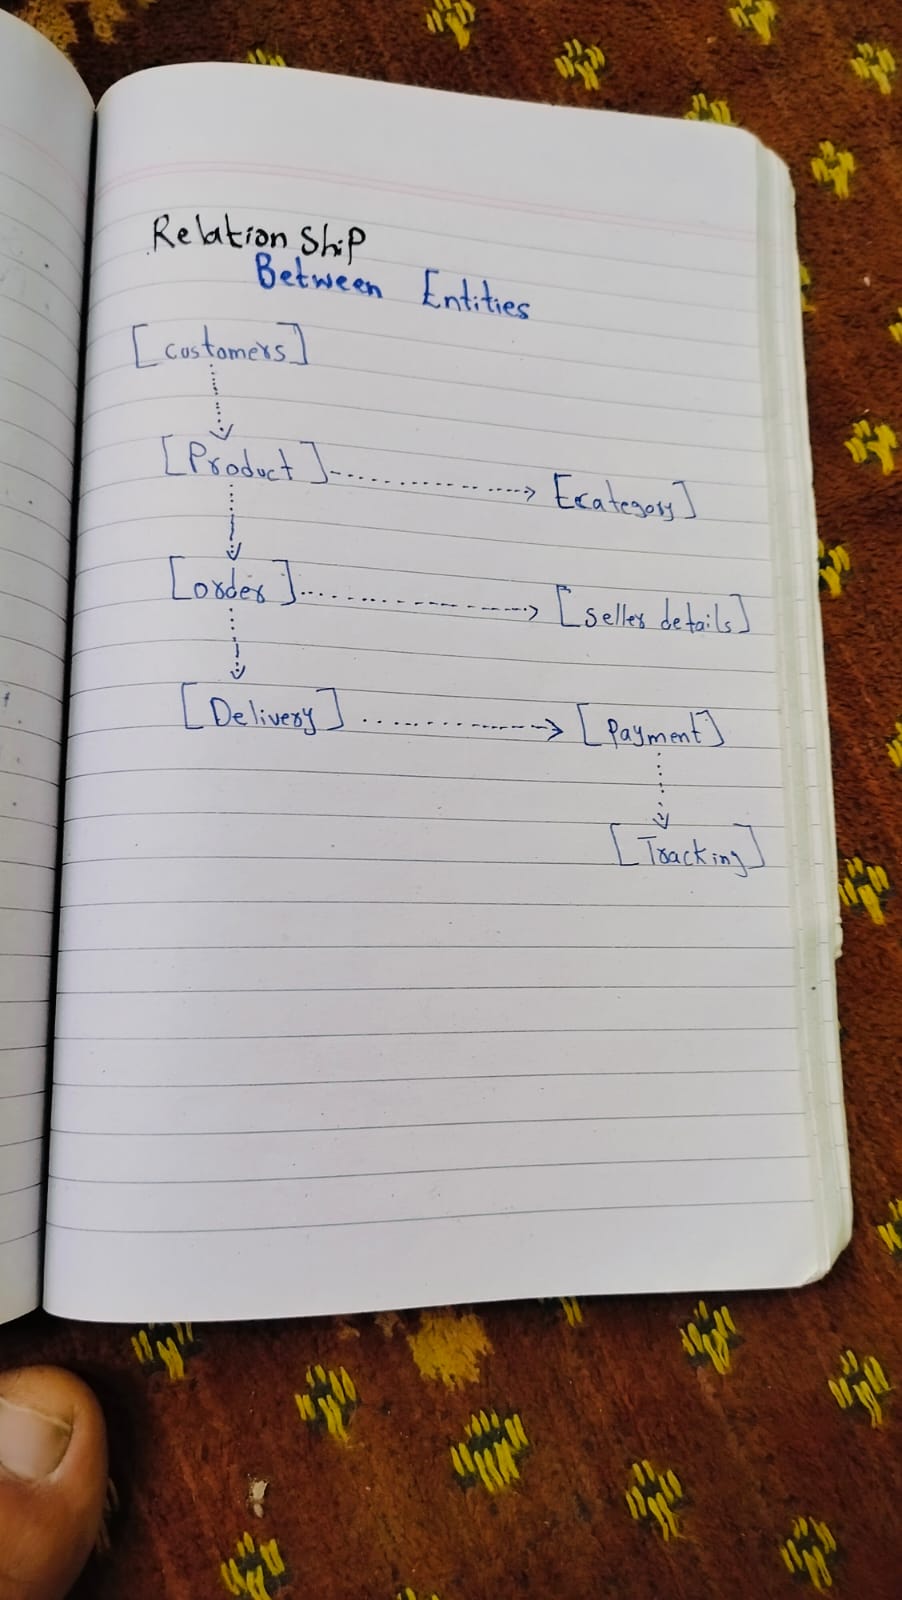 RelationShip
Between Entities
[customers]
[Product] [category]
[order] [seller details]
[Delivery] [Payment]
[Tracking]